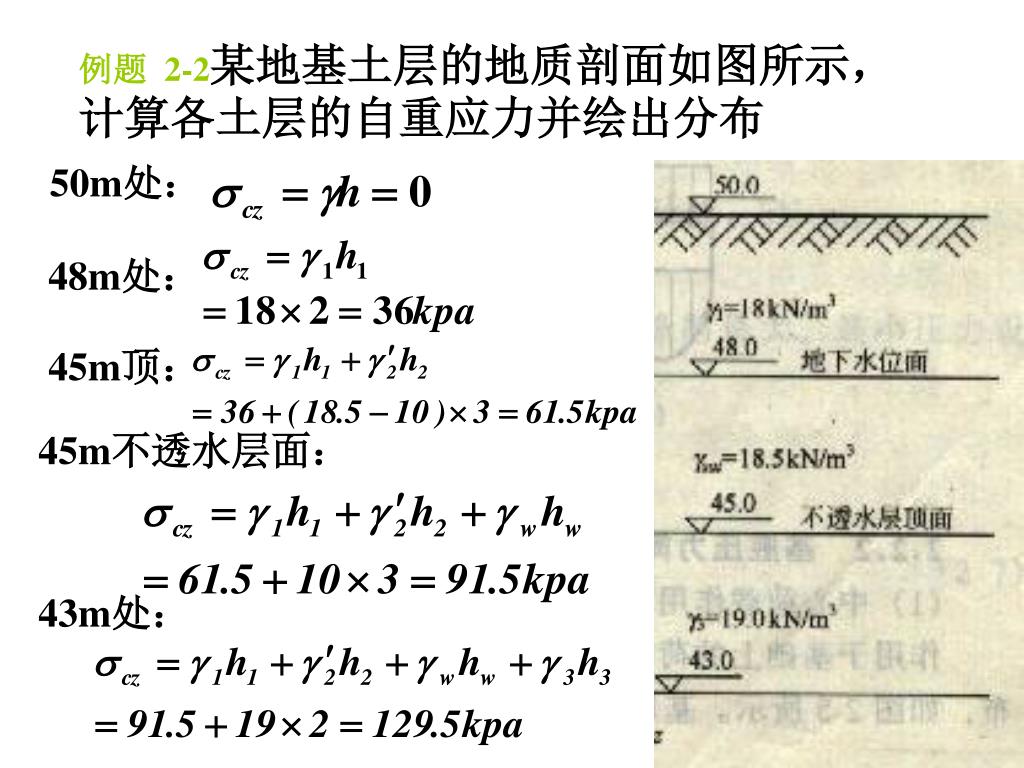 例题 2-2某地基土层的地质剖面如图所示，
计算各土层的自重应力并绘出分布
50m处：
σcz = γh = 0
48m处：
σcz = γ1h1
= 18 × 2 = 36kpa
45m顶：
σcz = γ1h1 + γ2′h2
= 36 + ( 18.5 − 10 ) × 3 = 61.5kpa
45m不透水层面：
σcz = γ1h1 + γ2′h2 + γwhw
= 61.5 + 10 × 3 = 91.5kpa
43m处：
σcz = γ1h1 + γ2′h2 + γwhw + γ3h3
= 91.5 + 19 × 2 = 129.5kpa
50.0
γ1=18kN/m³
48.0
地下水位面
γsw=18.5kN/m³
45.0
不透水层顶面
γ3=19.0kN/m³
43.0
z